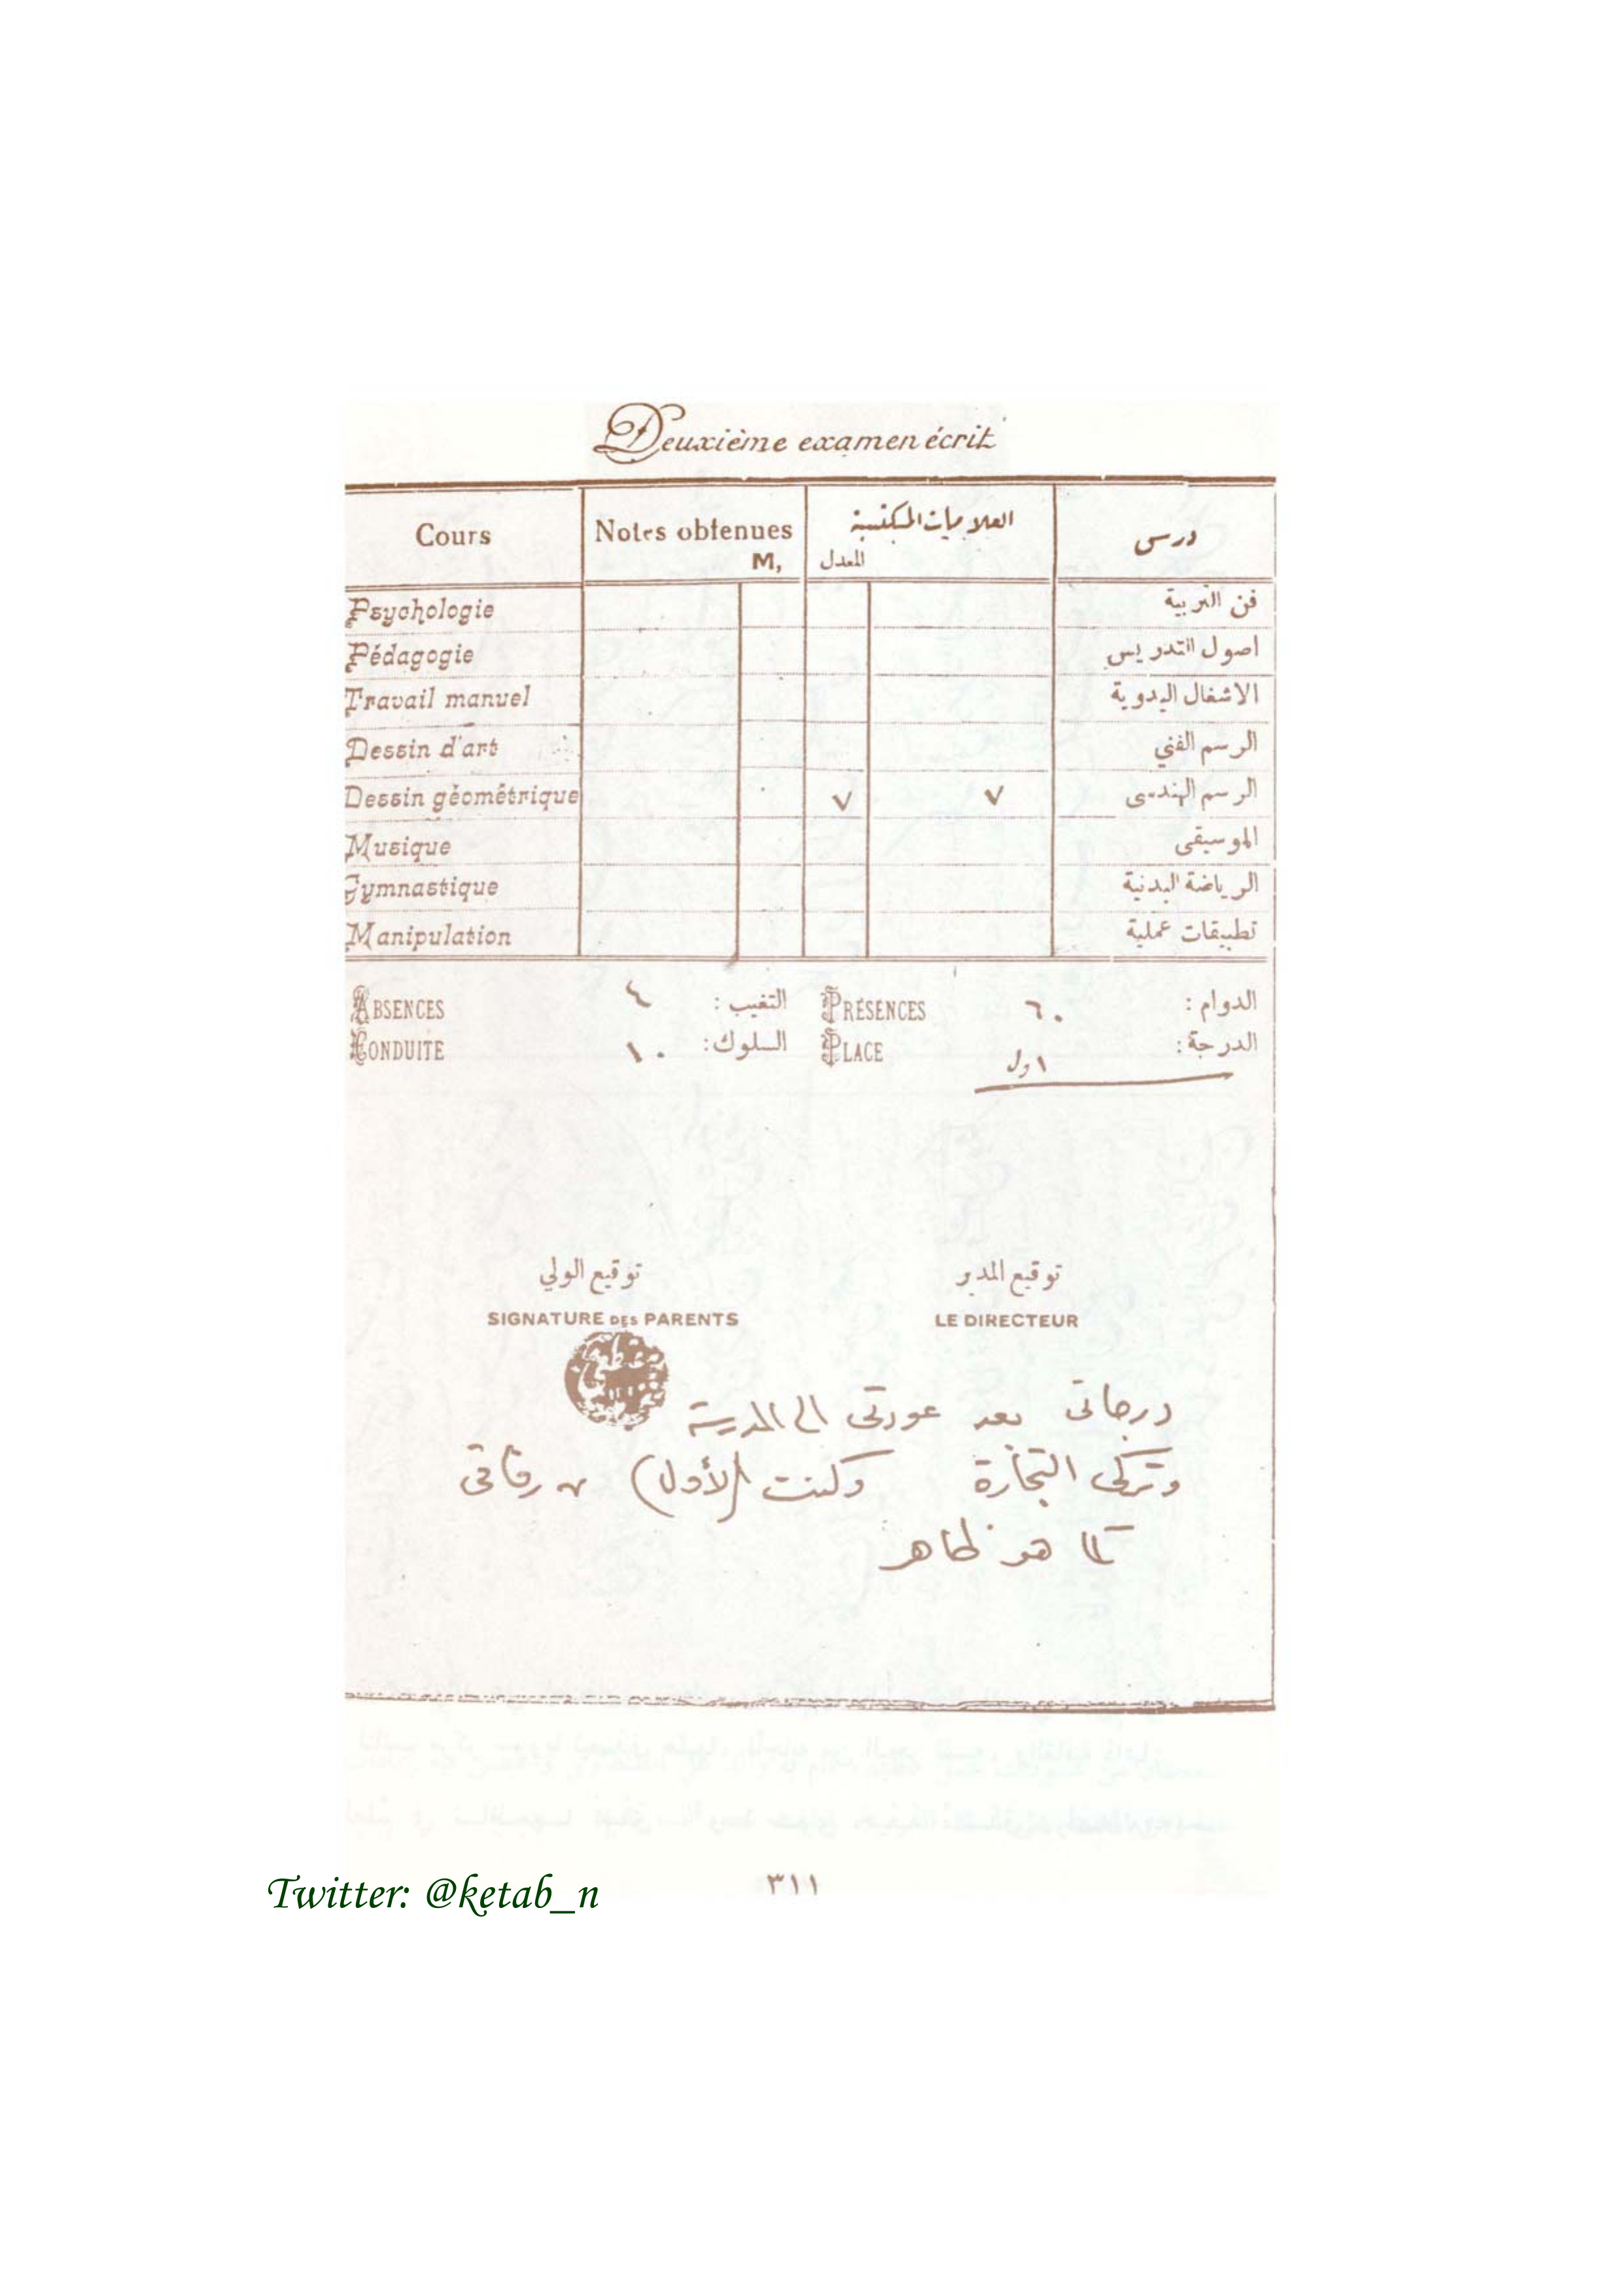 Deuxième examen écrit
Cours Notes obtenues M, العلامات المكتسبة المعدل درس
Psychologie فن التربية
Pédagogie اصول التدريس
Travail manuel الاشغال اليدوية
Dessin d'art الرسم الفني
Dessin géométrique ٧ ٧ الرسم الهندسى
Musique الموسيقى
Gymnastique الرياضة البدنية
Manipulation تطبيقات عملية
ABSENCES ٤ التغيب : PRÉSENCES ٦٠ الدوام :
CONDUITE ١٠ السلوك : PLACE اول الدرجة :
توقيع الولي توقيع المدير
SIGNATURE DES PARENTS LE DIRECTEUR
درجاتى بعد عودتى الى المدرسة
وتركى التجارة وكنت (الأول) من رفاقى
كما هو ظاهر
Twitter: @ketab_n ٣١١